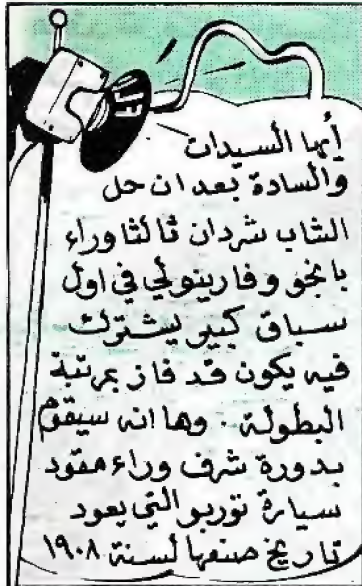 أيها السيدات
والسادة بعد ان حل
الشاب شردان ثالثا وراء
بانجو وفارينولي في اول
سباق كبير يشترك
فيه يكون قد فاز بمرتبة
البطولة .. وها انه سيقوم
بدورة شرف وراء مقود
سيارة توربو التي يعود
تاريخ صنعها لسنة ١٩٠٨